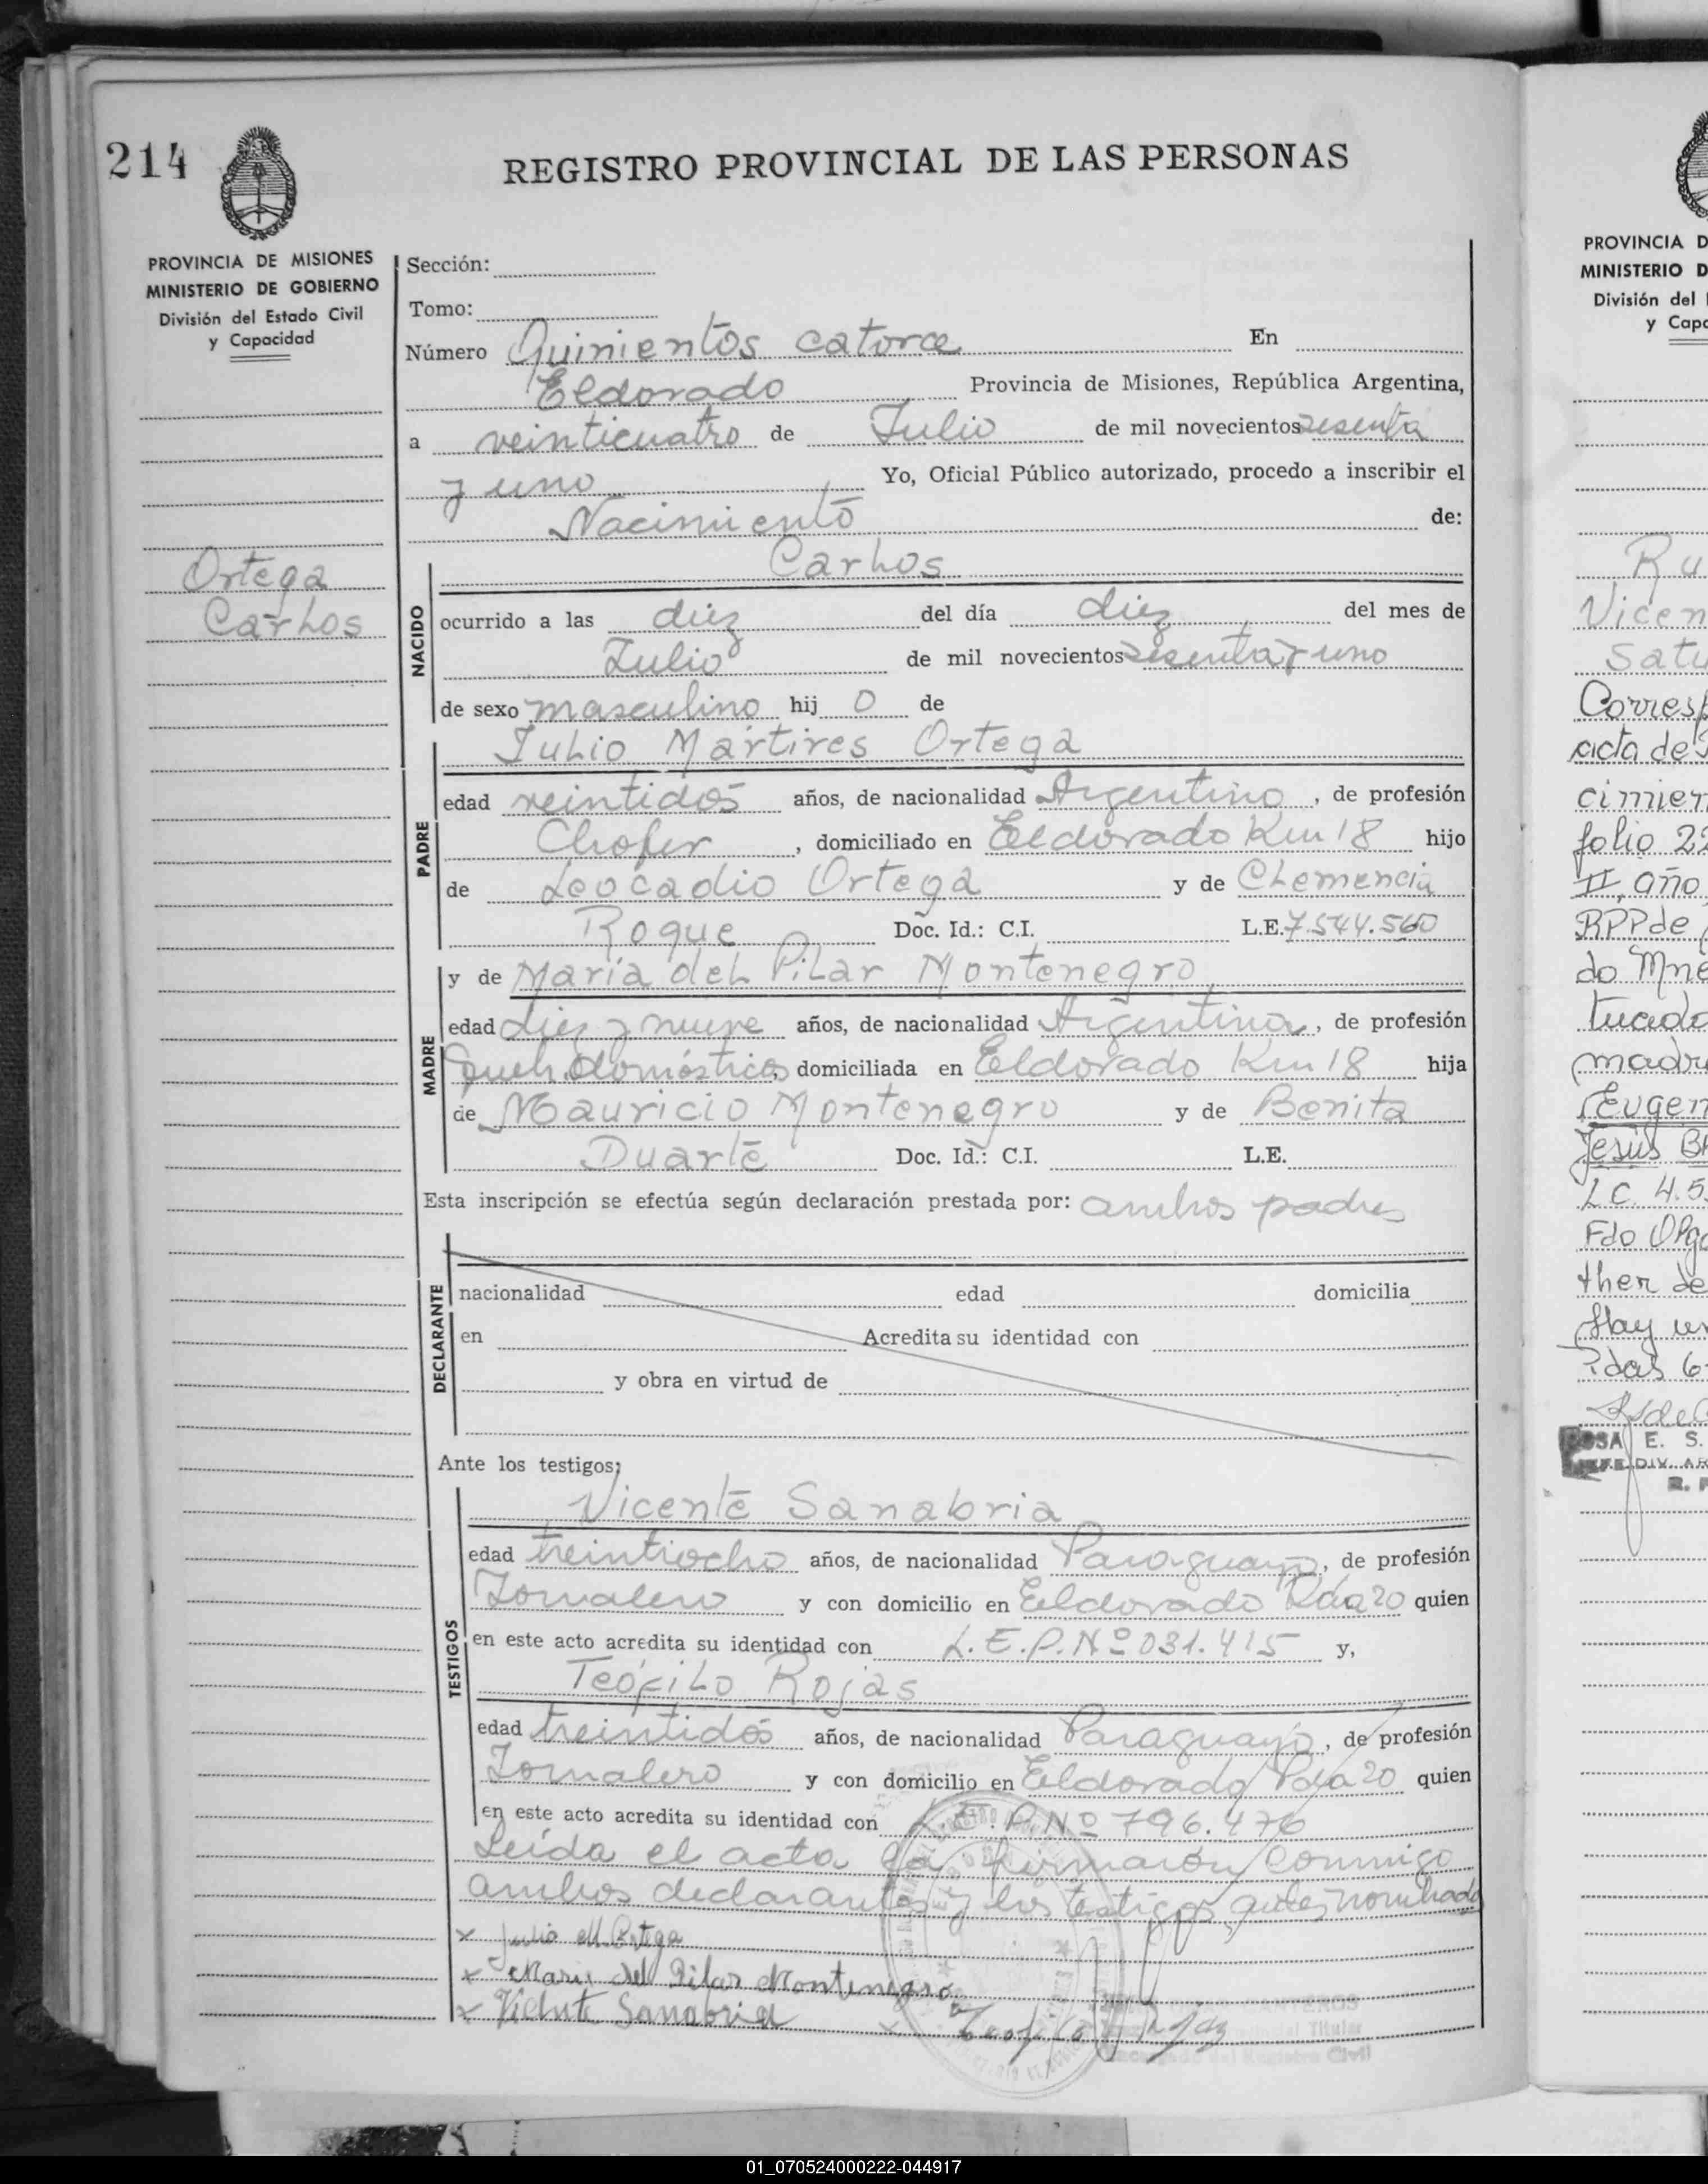 214
REGISTRO PROVINCIAL DE LAS PERSONAS
PROVINCIA DE MISIONES
MINISTERIO DE GOBIERNO
División del Estado Civil
y Capacidad
Ortega
Carlos
Sección:
Tomo:
Número Quinientos catorce En
Eldorado Provincia de Misiones, República Argentina,
a veinticuatro de Julio de mil novecientos sesenta
y uno Yo, Oficial Público autorizado, procedo a inscribir el
Nacimiento de:
NACIDO
Carlos
ocurrido a las diez del día diez del mes de
Julio de mil novecientos sesenta y uno
de sexo masculino hij o de
PADRE
Julio Mártires Ortega
edad veintidos años, de nacionalidad Argentino, de profesión
Chofer, domiciliado en Eldorado Km 18 hijo
de Leocadio Ortega y de Clemencia
Roque Doc. Id.: C.I. L.E. 7.544.560
MADRE
y de María del Pilar Montenegro
edad diez y nueve años, de nacionalidad Argentina, de profesión
domiciliada en Eldorado Km 18 hija
de Mauricio Montenegro y de Benita
Duarte Doc. Id.: C.I. L.E.
Esta inscripción se efectúa según declaración prestada por: ambos padres
DECLARANTE
nacionalidad edad domicilia
en Acredita su identidad con
y obra en virtud de
Ante los testigos:
TESTIGOS
Vicente Sanabria
edad treintiocho años, de nacionalidad Paraguayo, de profesión
Jornalero y con domicilio en Eldorado Pda 20 quien
en este acto acredita su identidad con L.E.P. Nº 031.415 y,
Teófilo Rojas
edad treintidos años, de nacionalidad Paraguayo, de profesión
Jornalero y con domicilio en Eldorado Pda 20 quien
en este acto acredita su identidad con L.E.P. Nº 796.476
Leída el acta la firmaron conmigo
ambos declarantes y los testigos antes nombrado
x Julio M Ortega
x Maria del Pilar Montenegro
x Vicente Sanabria x Teofilo Rojas
Titular
Registro Civil
PROVINCIA D
MINISTERIO D
División del
y Capa
Ru
Vicen
Satu
Corresp
acta de
cimien
folio 22
II, año
RPP de
do Mne
tucada
madre
Eugen
Jesús BA
L.C. 4.5
Fdo Olga
ther de
Hay un
Pdas 6
OSA E. S.
JEFE DIV. AR
R. P
01_070524000222-044917